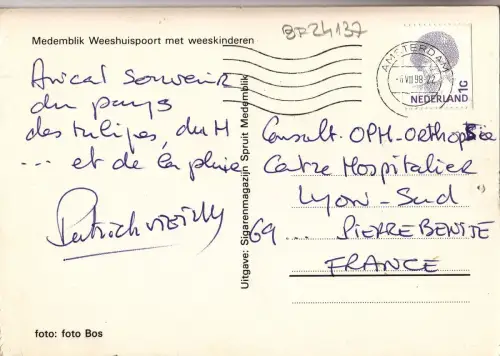 BF24137
Medemblik Weeshuispoort met weeskinderen
Amical souvenir
du pays
des tulipes, du H
... et de la pluie
Uitgave: Sigarenmagazijn Spruit Medemblik
AMSTERDAM
VII 98 22
NEDERLAND
1G
Consult. OPH-Orthoptie
Centre Hospitalier
Lyon-Sud
69... PIERRE BENITE
FRANCE
foto: foto Bos